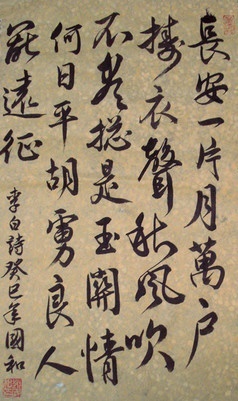 長安一片月萬戶
擣衣聲秋風吹
不盡總是玉關情
何日平胡虜良人
罷遠征
李白詩癸巳年國和